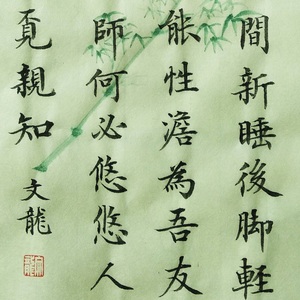 間新睡後脚軽
能性澹為吾友
師何必悠悠人
覔親知
文龍